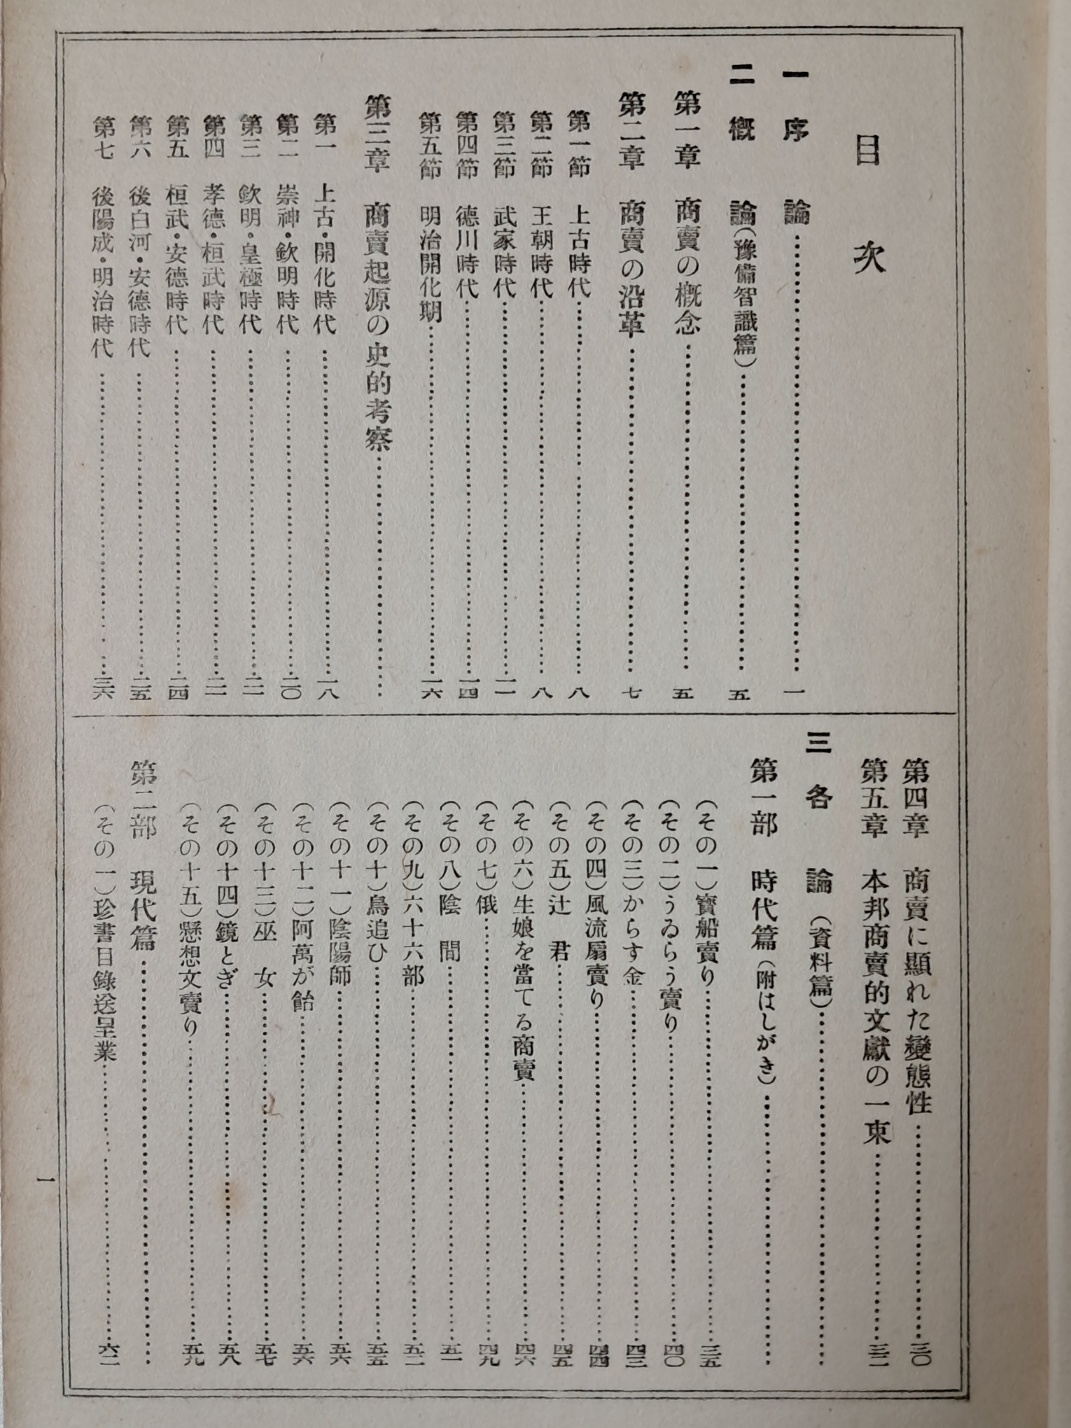 目次
一　序　論…………一
二　概　論（豫備智識篇）…………五
第一章　商賣の概念…………五
第二章　商賣の沿革…………七
第一節　上古時代…………八
第二節　王朝時代…………八
第三節　武家時代…………一一
第四節　德川時代…………一四
第五節　明治開化期…………一六
第三章　商賣起源の史的考察…………
第一　上古・開化時代…………一八
第二　崇神・欽明時代…………二〇
第三　欽明・皇極時代…………二一
第四　孝德・桓武時代…………二一
第五　桓武・安德時代…………二四
第六　後白河・安德時代…………二五
第七　後陽成・明治時代…………二六
第四章　商賣に顯れた變態性…………三〇
第五章　本邦商賣的文獻の一束…………三二
三　各　論（資料篇）…………
第一部　時代篇（附はしがき）…………
（その一）寶船賣り…………三五
（その二）うゐらう賣り…………四〇
（その三）からす金…………四三
（その四）風流扇賣り…………四四
（その五）辻　君…………四五
（その六）生娘を當てる商賣…………四六
（その七）俄…………四九
（その八）陰　間…………五一
（その九）六十六部…………五二
（その十）鳥追ひ…………五五
（その十一）陰陽師…………五六
（その十二）阿萬が飴…………五六
（その十三）巫　女…………五七
（その十四）鏡とぎ…………五八
（その十五）懸想文賣り…………五九
第二部　現代篇…………
（その一）珍書目錄送呈業…………六二
一